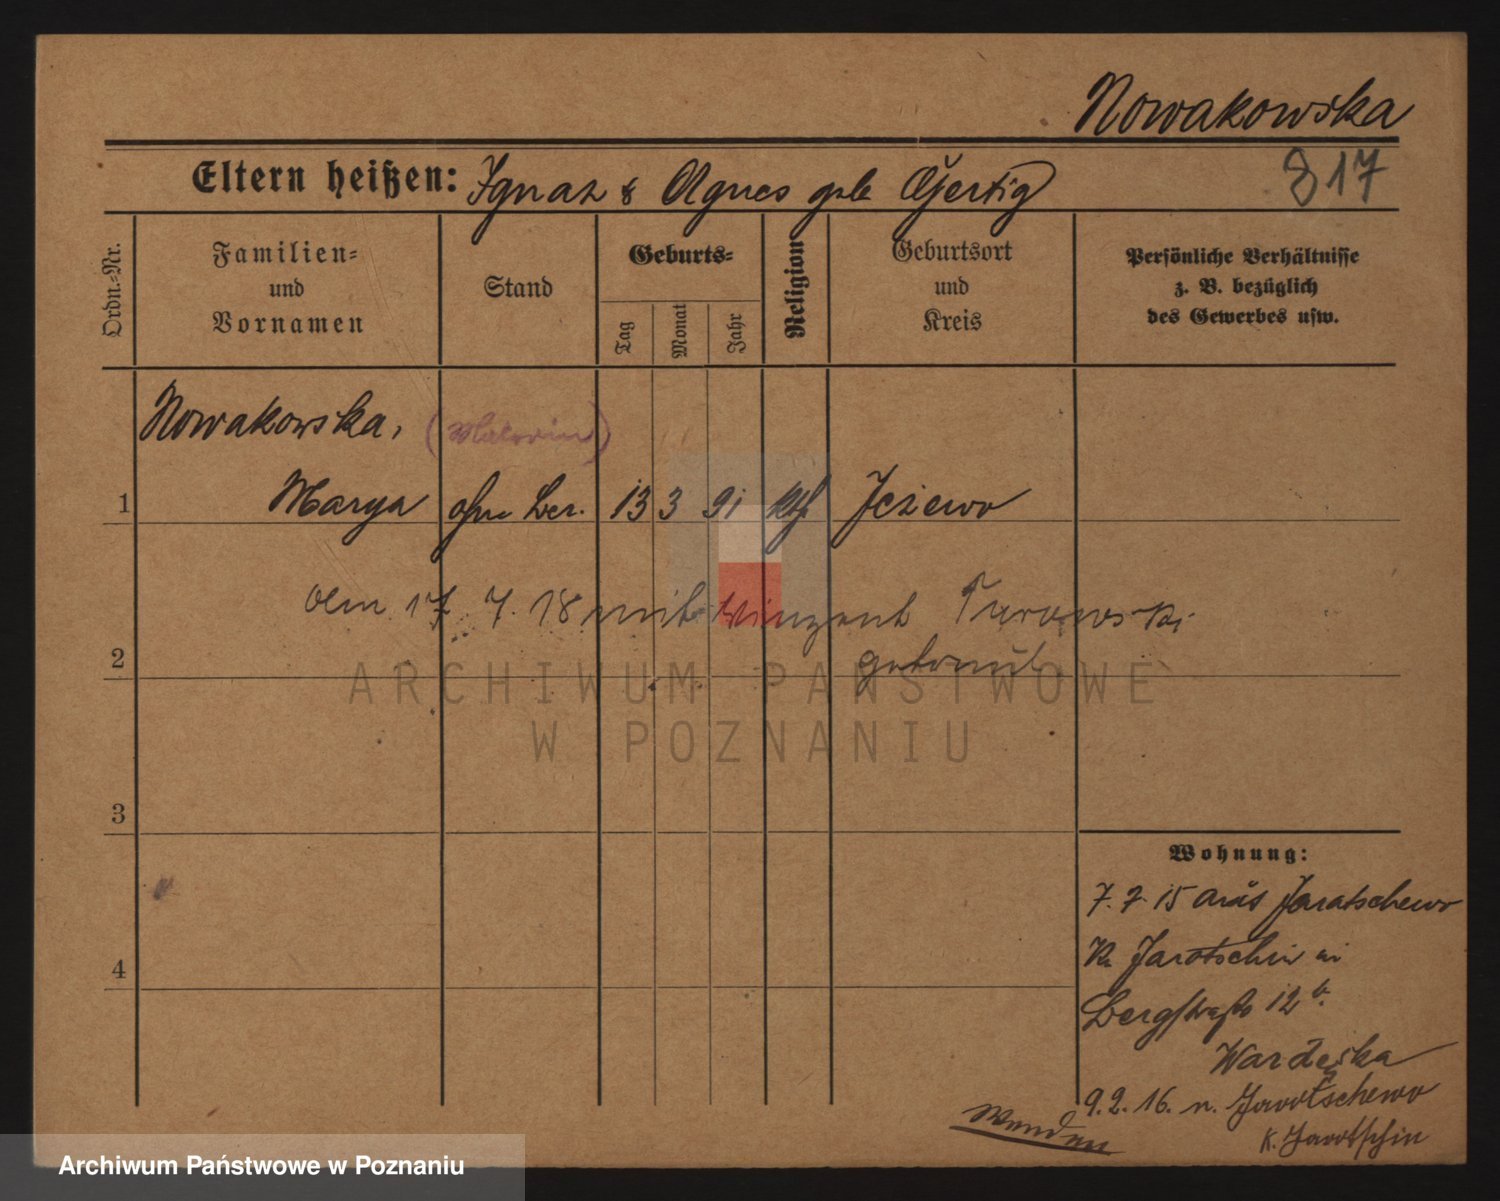 Nowakowska
Eltern heißen: Ignaz & Agnes geb
817
Ordn.-Nr.
Familien-
und
Vornamen
Stand
Geburts-
Tag
Monat
Jahr
Religion
Geburtsort
und
Kreis
Persönliche Verhältnisse
z. B. bezüglich
des Gewerbes usw.
Nowakowska,
1 Marya ohne Ber. 13 3 91 kth Jeżewo
17 7. 18 mit Vinzent Turowski
getraut
2
3
4
ARCHIWUM PAŃSTWOWE
W POZNANIU
Wohnung:
7. 7. 15 aus Jaratschewo
Kr. Jarotschin in
Bergstraße 12 b.
9. 2. 16. n. Jarotschewo
K. Jarotschin
Wenden
Archiwum Państwowe w Poznaniu